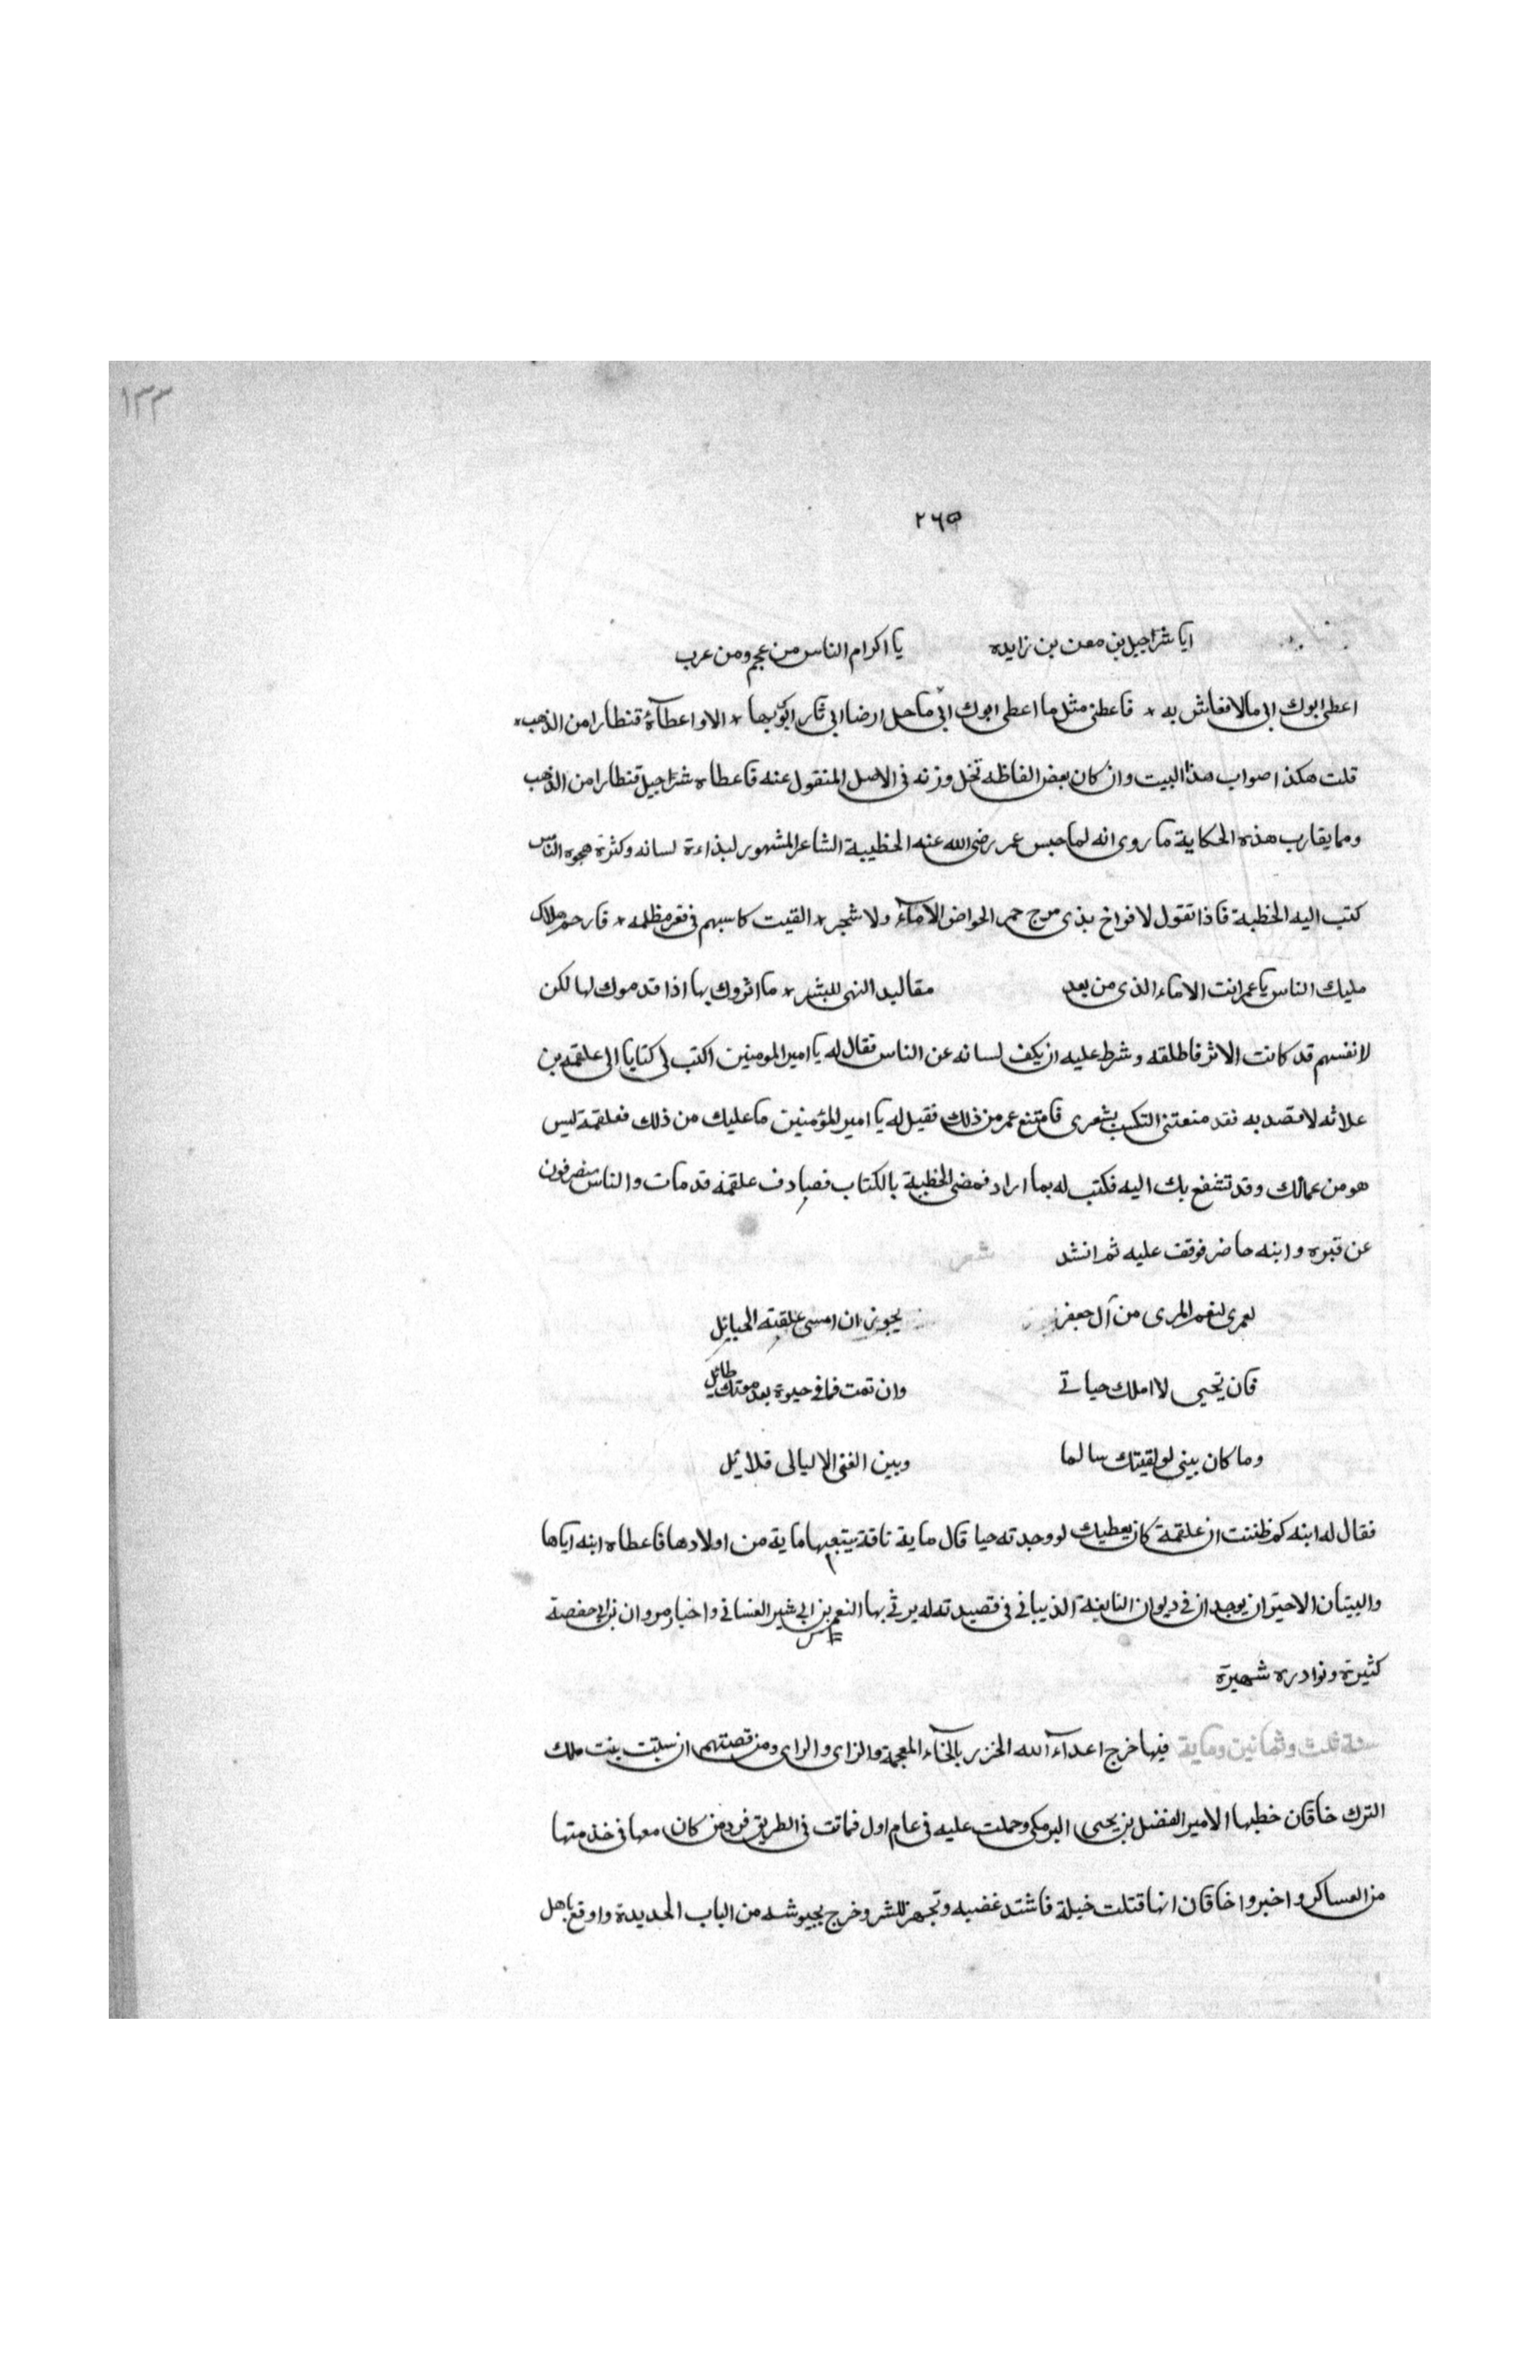 ١٣٣
٢٦٥
ايا شراحيل بن معن بن زايده يا اكرام الناس من عجم ومن عرب
اعطى ابوك ابى مالا فعاش به * فاعطنى مثل ما اعطى ابوك ابى ما حل ارضا ابى ثار ابوك بها * الا واعطاه قنطارا من الذهب *
قلت هكذا صواب هذا البيت وان كان بعض الفاظه تخل وزنه فى الاصل المنقول عنه فاعطاه شراحيل قنطارا من الذهب
ومما يقارب هذه الحكاية ما روى انه لما حبس عمر رضى الله عنه الحظيبة الشاعر المشهور لبذاءة لسانه وكثرة هجوه الناس
كتب اليه الحظبة فاذا تقول لافراخ بذى مرج حمر الحواض لا ماء ولا شجر * القيت كاسبهم فى قعر مظلمه * فارحم هداك
مليك الناس يا عمر انت الاماء الذى من بعد مقاليد النهى للبشر * ما اثروك بها اذا قدموك لها لكن
لانفسهم قد كانت الاثر فاطلقه وشرط عليه ان يكف لسانه عن الناس فقال له يا امير المومنين اكتب لى كتابا الى علقمه بن
علاثه لاقصد به فقد منعتنى التكسب بشعرى فامتنع عمر من ذلك فقيل له يا امير المؤمنين ما عليك من ذلك فعلقمة ليس
هو من عمالك وقد تتشفع بك اليه فكتب له بما اراد فمضى الحظبية بالكتاب فصادف علقمه قد مات والناس منصرفون
عن قبره وابنه حاضر فوقف عليه ثم انشد شعر
لعمرى لنعم المرى من آل جعفر يجوزن ان امسى علقته الحبايل
فان تحيى لا املك حياتى وان تمت فما فى حيوة بعد موتك طايل
وما كان بينى لو لقيتك سالما وبين الغنى الا ليالى قلائل
فقال له ابنه كم ظننت ان علقمة كان يعطيك لو وجدته حيا قال ماية ناقة يتبعها ماية من اولادها فاعطاه ابنه اياها
والبيتان الاخيران يوجدان فى ديوان النابغة الذيبانى فى قصيدته له يرثى بها النعم بن ابى شير الغسانى واخبار مروان بن ابى حفصة
كثيرة ونوادره شهيرة
سنة ثلث وثمانين وماية فيها خرج اعداء الله الخزر بالخاء المعجمة والزاى والراى ومن قصتهم ان ستيت بنت ملك
الترك خاقان خطبها الامير الفضل بن يحيى البرمكى وحملت عليه فى عام اول فماتت فى الطريق فرد من كان معها فى خذمتها
من العساكر واخبروا خاقان انها قتلت خيلة فاشتد غضبه وتجهز للشر وخرج بجيوشه من الباب الحديدة واوقع باهل